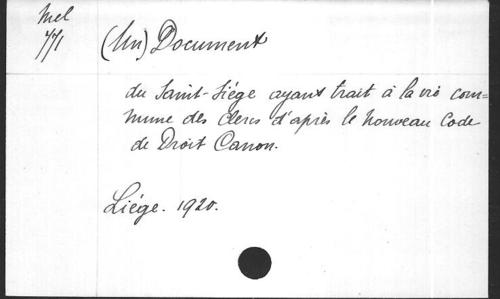 Mel
771
(Un) Document
du Saint-Siége ayant trait à la vie com=
mune des Clercs d'après le nouveau Code
de Droit Canon.
Liége. 1920.